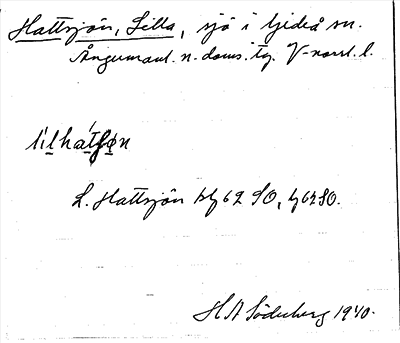 Hattsjön, Lilla, sjö i Gideå sn.
Ångermanl. n. doms. tg. V-norrl. l.
lilhatʃøn
L. Hattsjön bl 62 SO,
H A Söderberg 1940.